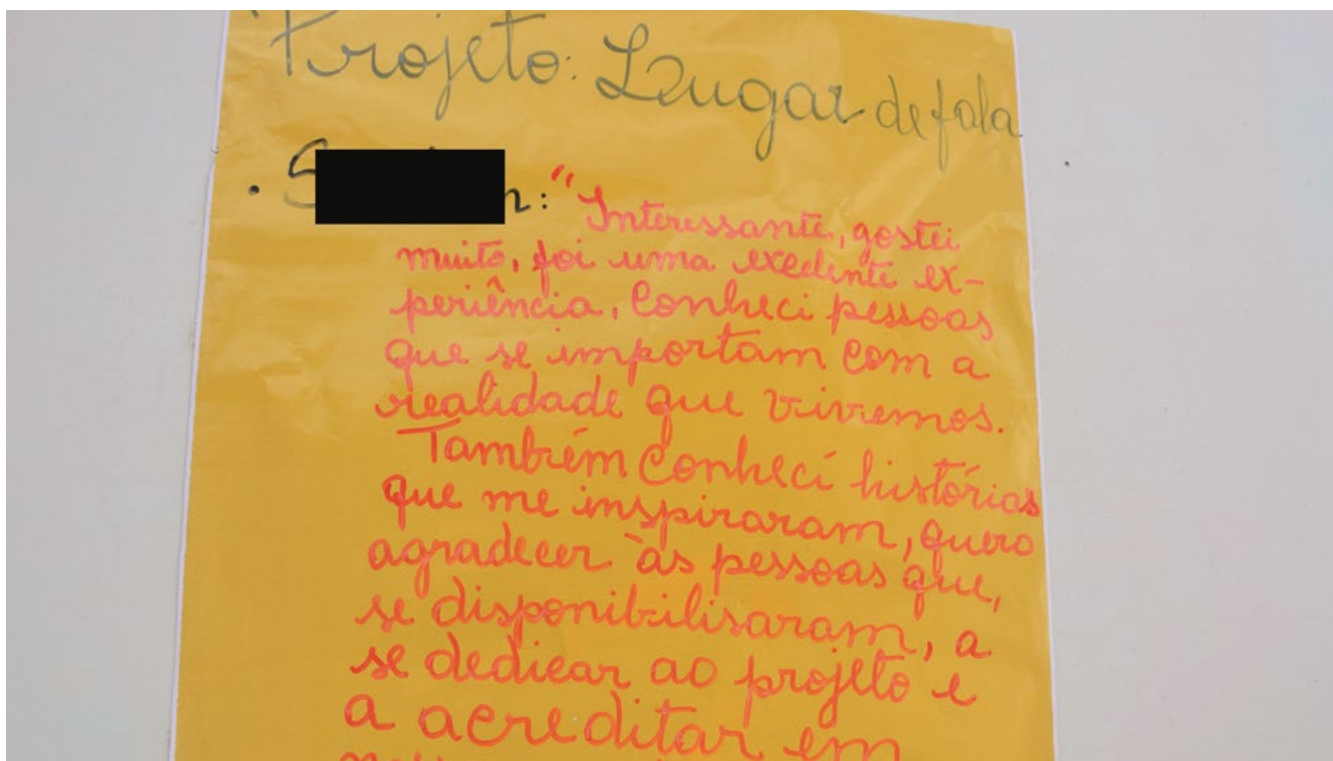 Projeto: Lugar de fala
"Interessante, gostei
muito, foi uma excelente ex-
periência, Conheci pessoas
que se importam com a
realidade que vivemos.
Também conheci histórias
que me inspiraram, quero
agradecer às pessoas que,
se disponibilisaram, a
se dedicar ao projeto e
a acreditar em